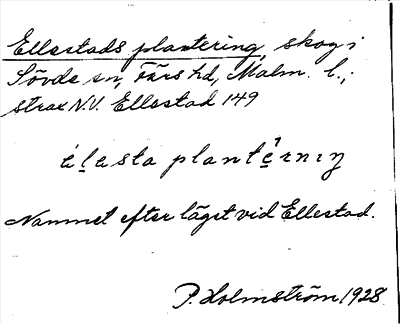 Ellestads plantering, skog i
Sövde sn, Färs hd, Malm. l.,
strax N.V. Ellestad 149
élesta plantérnıŋ
Namnet efter läget vid Ellestad.
P. Holmström 1928